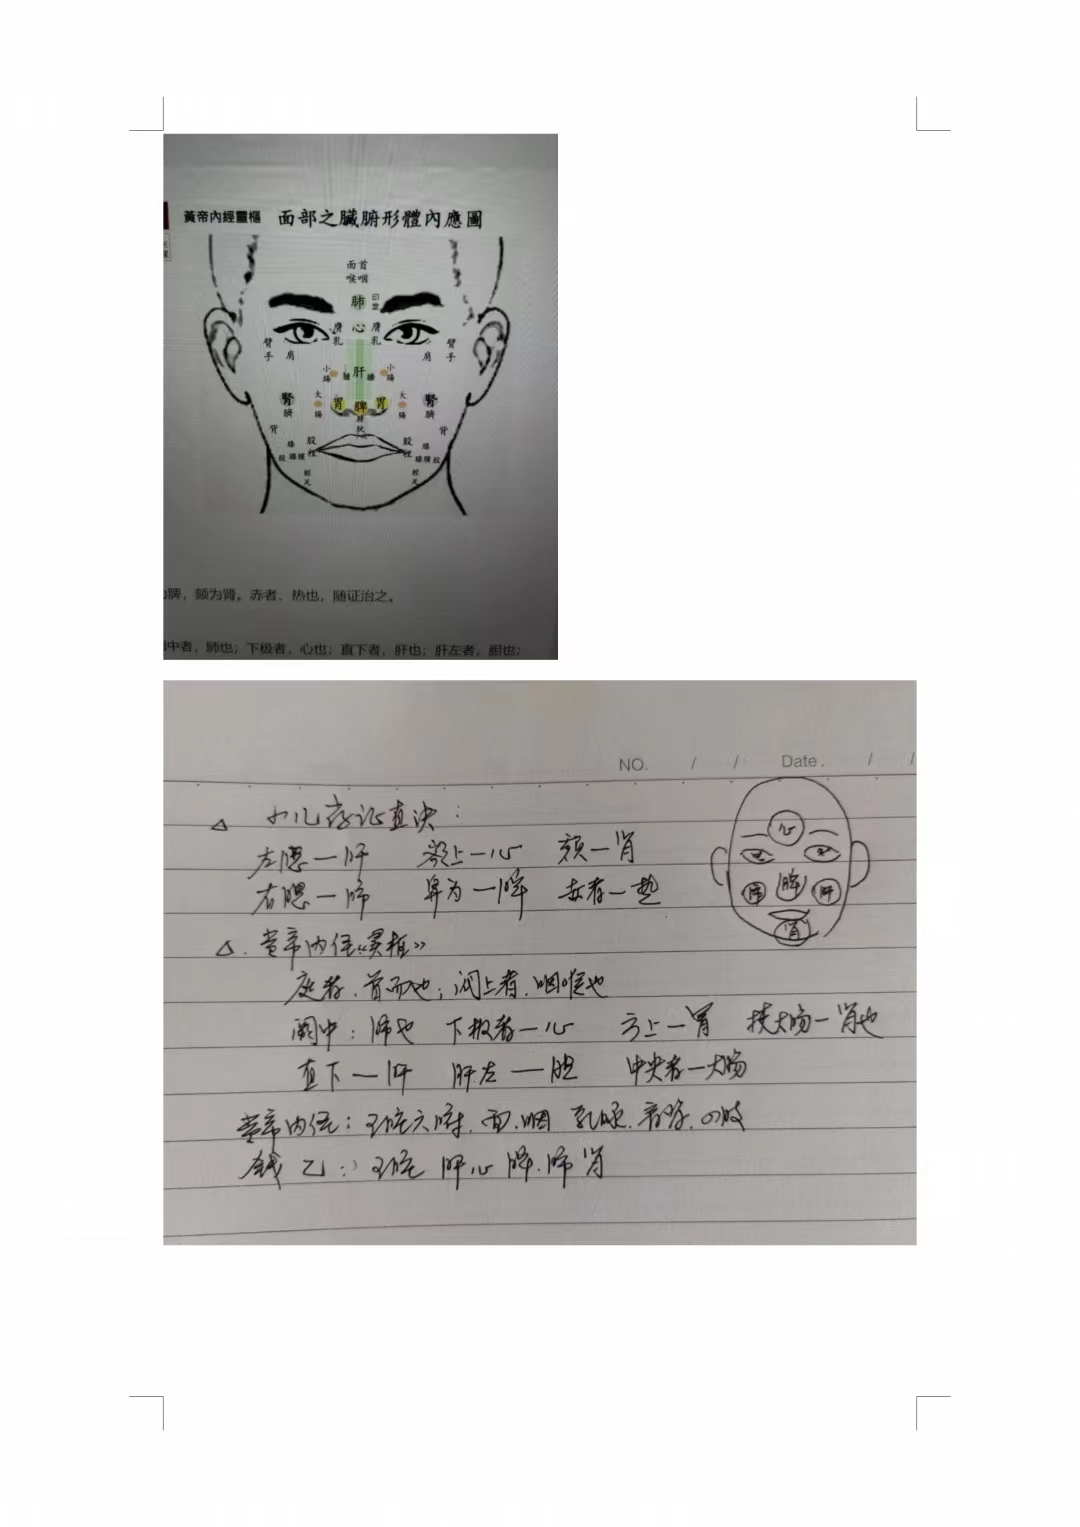 黃帝內經靈樞 面部之臟腑形體內應圖
面首
喉咽
肺 印堂
膺乳 心 膺乳
臂手 肩 肩 臂手
小腸 膽 肝 膽 小腸
腎 大腸 胃 脾 胃 大腸 腎
臍 臍
背 膀胱 背
膝 股裡 股裡 膝
股 膝臏 膝臏 股
脛足 脛足
脾，颏为肾。赤者、热也，随证治之。
中者，肺也；下极者，心也；直下者，肝也；肝左者，胆也；
NO. / / Date. / /
△ 小儿药证直决：
左腮一肝 额上一心 颏一肾
右腮一肺 鼻为一脾 赤者一热
△. 黄帝内经《灵枢》
庭者、首面也；阙上者、咽喉也
阙中：肺也 下极者一心 方上一胃 挟大肠一肾也
直下一肝 肝左一胆 中央者一大肠
黄帝内经：五脏六腑、面、咽 四肢
钱乙：五脏 肝心脾、肺肾
心
肺 脾 肝
肾